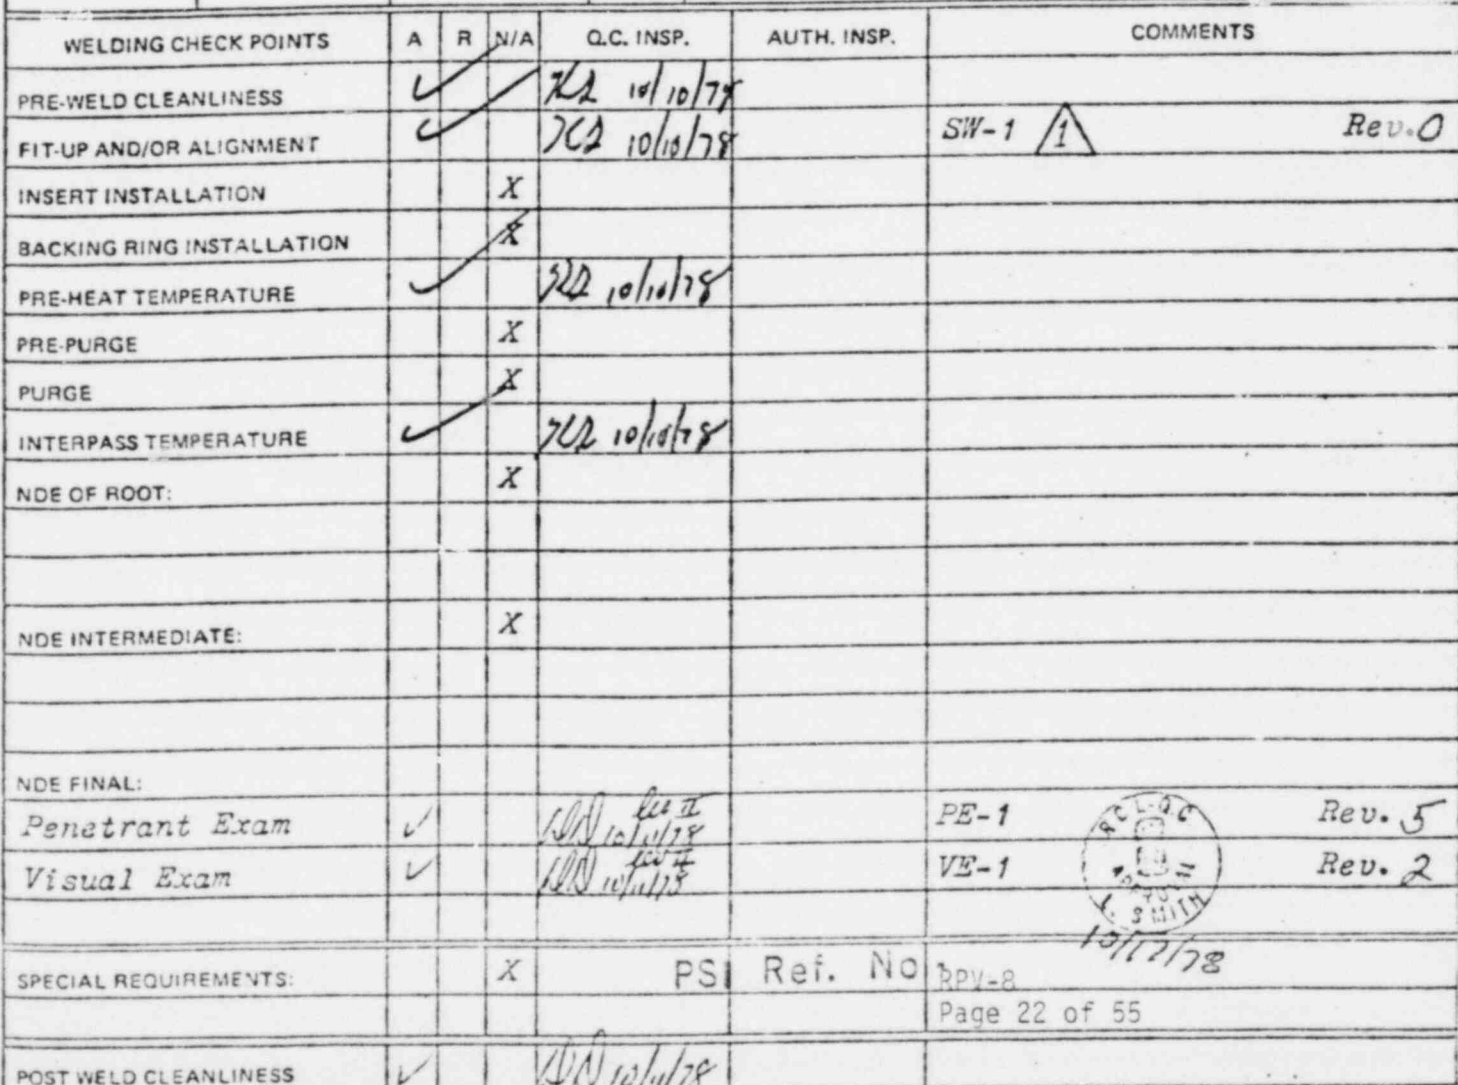 WELDING CHECK POINTS A R N/A Q.C. INSP. AUTH. INSP. COMMENTS
PRE-WELD CLEANLINESS ✓ 10/10/78
FIT-UP AND/OR ALIGNMENT ✓ 10/10/78 SW-1 1 Rev. 0
INSERT INSTALLATION X
BACKING RING INSTALLATION X
PRE-HEAT TEMPERATURE ✓ 10/10/78
PRE-PURGE X
PURGE X
INTERPASS TEMPERATURE ✓ 10/10/78
NDE OF ROOT: X
NDE INTERMEDIATE: X
NDE FINAL:
Penetrant Exam ✓ lev II 10/11/78 PE-1 Rev. 5
Visual Exam ✓ lev II 10/11/78 VE-1 Rev. 2
RCL-QC
L. SMITH
10/17/78
SPECIAL REQUIREMENTS: X PSI Ref. No. RPV-8
Page 22 of 55
POST WELD CLEANLINESS ✓ 10/11/78